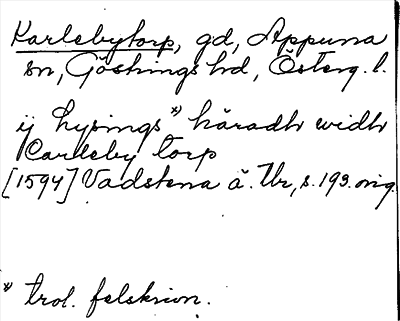 Karlebytorp, gd, Appuna
sn, Göstrings hd, Österg. l.
ij hysings*) häradh widh
Carleby torp
[1594] Vadstena ä. Ur, s. 193. orig.
*) trol. felskrivn.